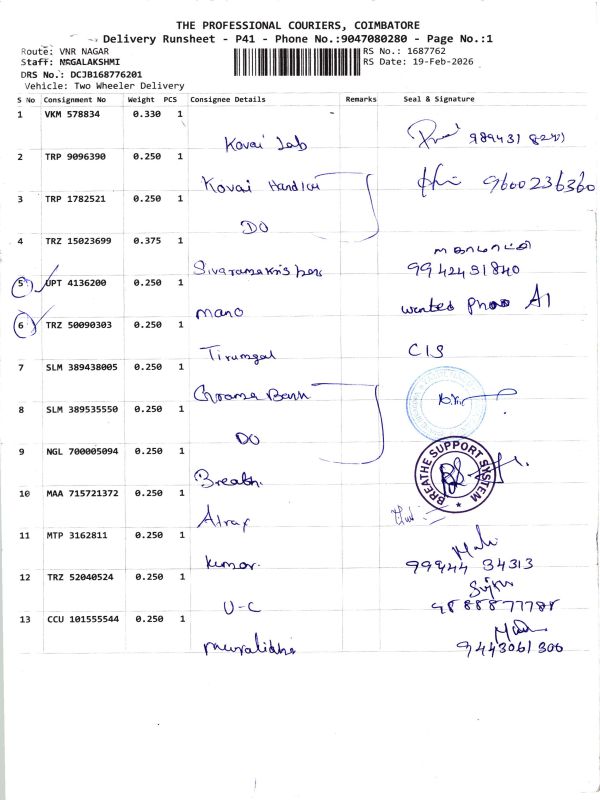 THE PROFESSIONAL COURIERS, COIMBATORE
Delivery Runsheet - P41 - Phone No.:9047080280 - Page No.:1
Route: VNR NAGAR
RS No.: 1687762
Staff: NAGALAKSHMI
RS Date: 19-Feb-2026
DRS No.: DCJB168776201
Vehicle: Two Wheeler Delivery
S No Consignment No Weight PCS Consignee Details Remarks Seal & Signature
1 VKM 578834 0.330 1
Kovai Lab
2 TRP 9096390 0.250 1
Kovai 9600236360
3 TRP 1782521 0.250 1
DO
4 TRZ 15023699 0.375 1
9942491840
5 UPT 4136200 0.250 1
mano wanted A1
6 TRZ 50090303 0.250 1
Tirumgal
7 SLM 389438005 0.250 1
Bank
8 SLM 389535550 0.250 1
DO
9 NGL 700005094 0.250 1
BREATHE SUPPORT SYSTEM
Breath.
10 MAA 715721372 0.250 1
11 MTP 3162811 0.250 1
kumar. 99944 34313
12 TRZ 52040524 0.250 1
U-C
13 CCU 101555544 0.250 1
9443061306